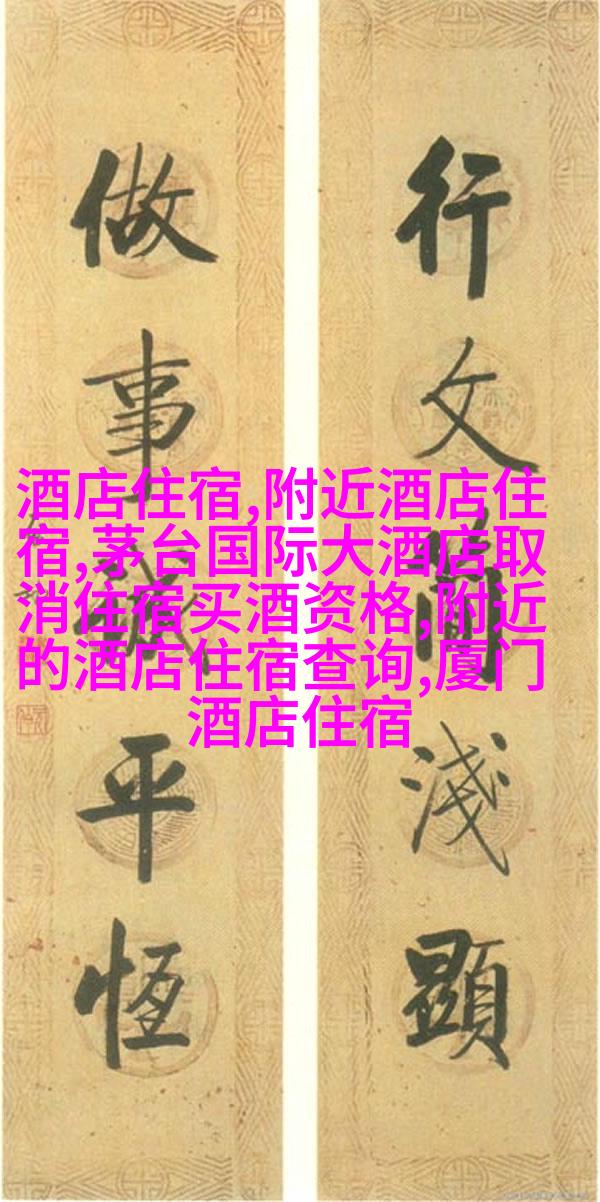 行文簡淺顯
做事誠平恆
酒店住宿,附近酒店住
宿,茅台国际大酒店取
消住宿买酒资格,附近
的酒店住宿查询,厦门
酒店住宿